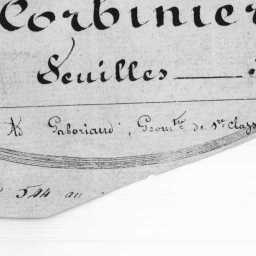 Corbinier
Feuilles
Gaboriaud, Géom.tre de 1re class
544 au